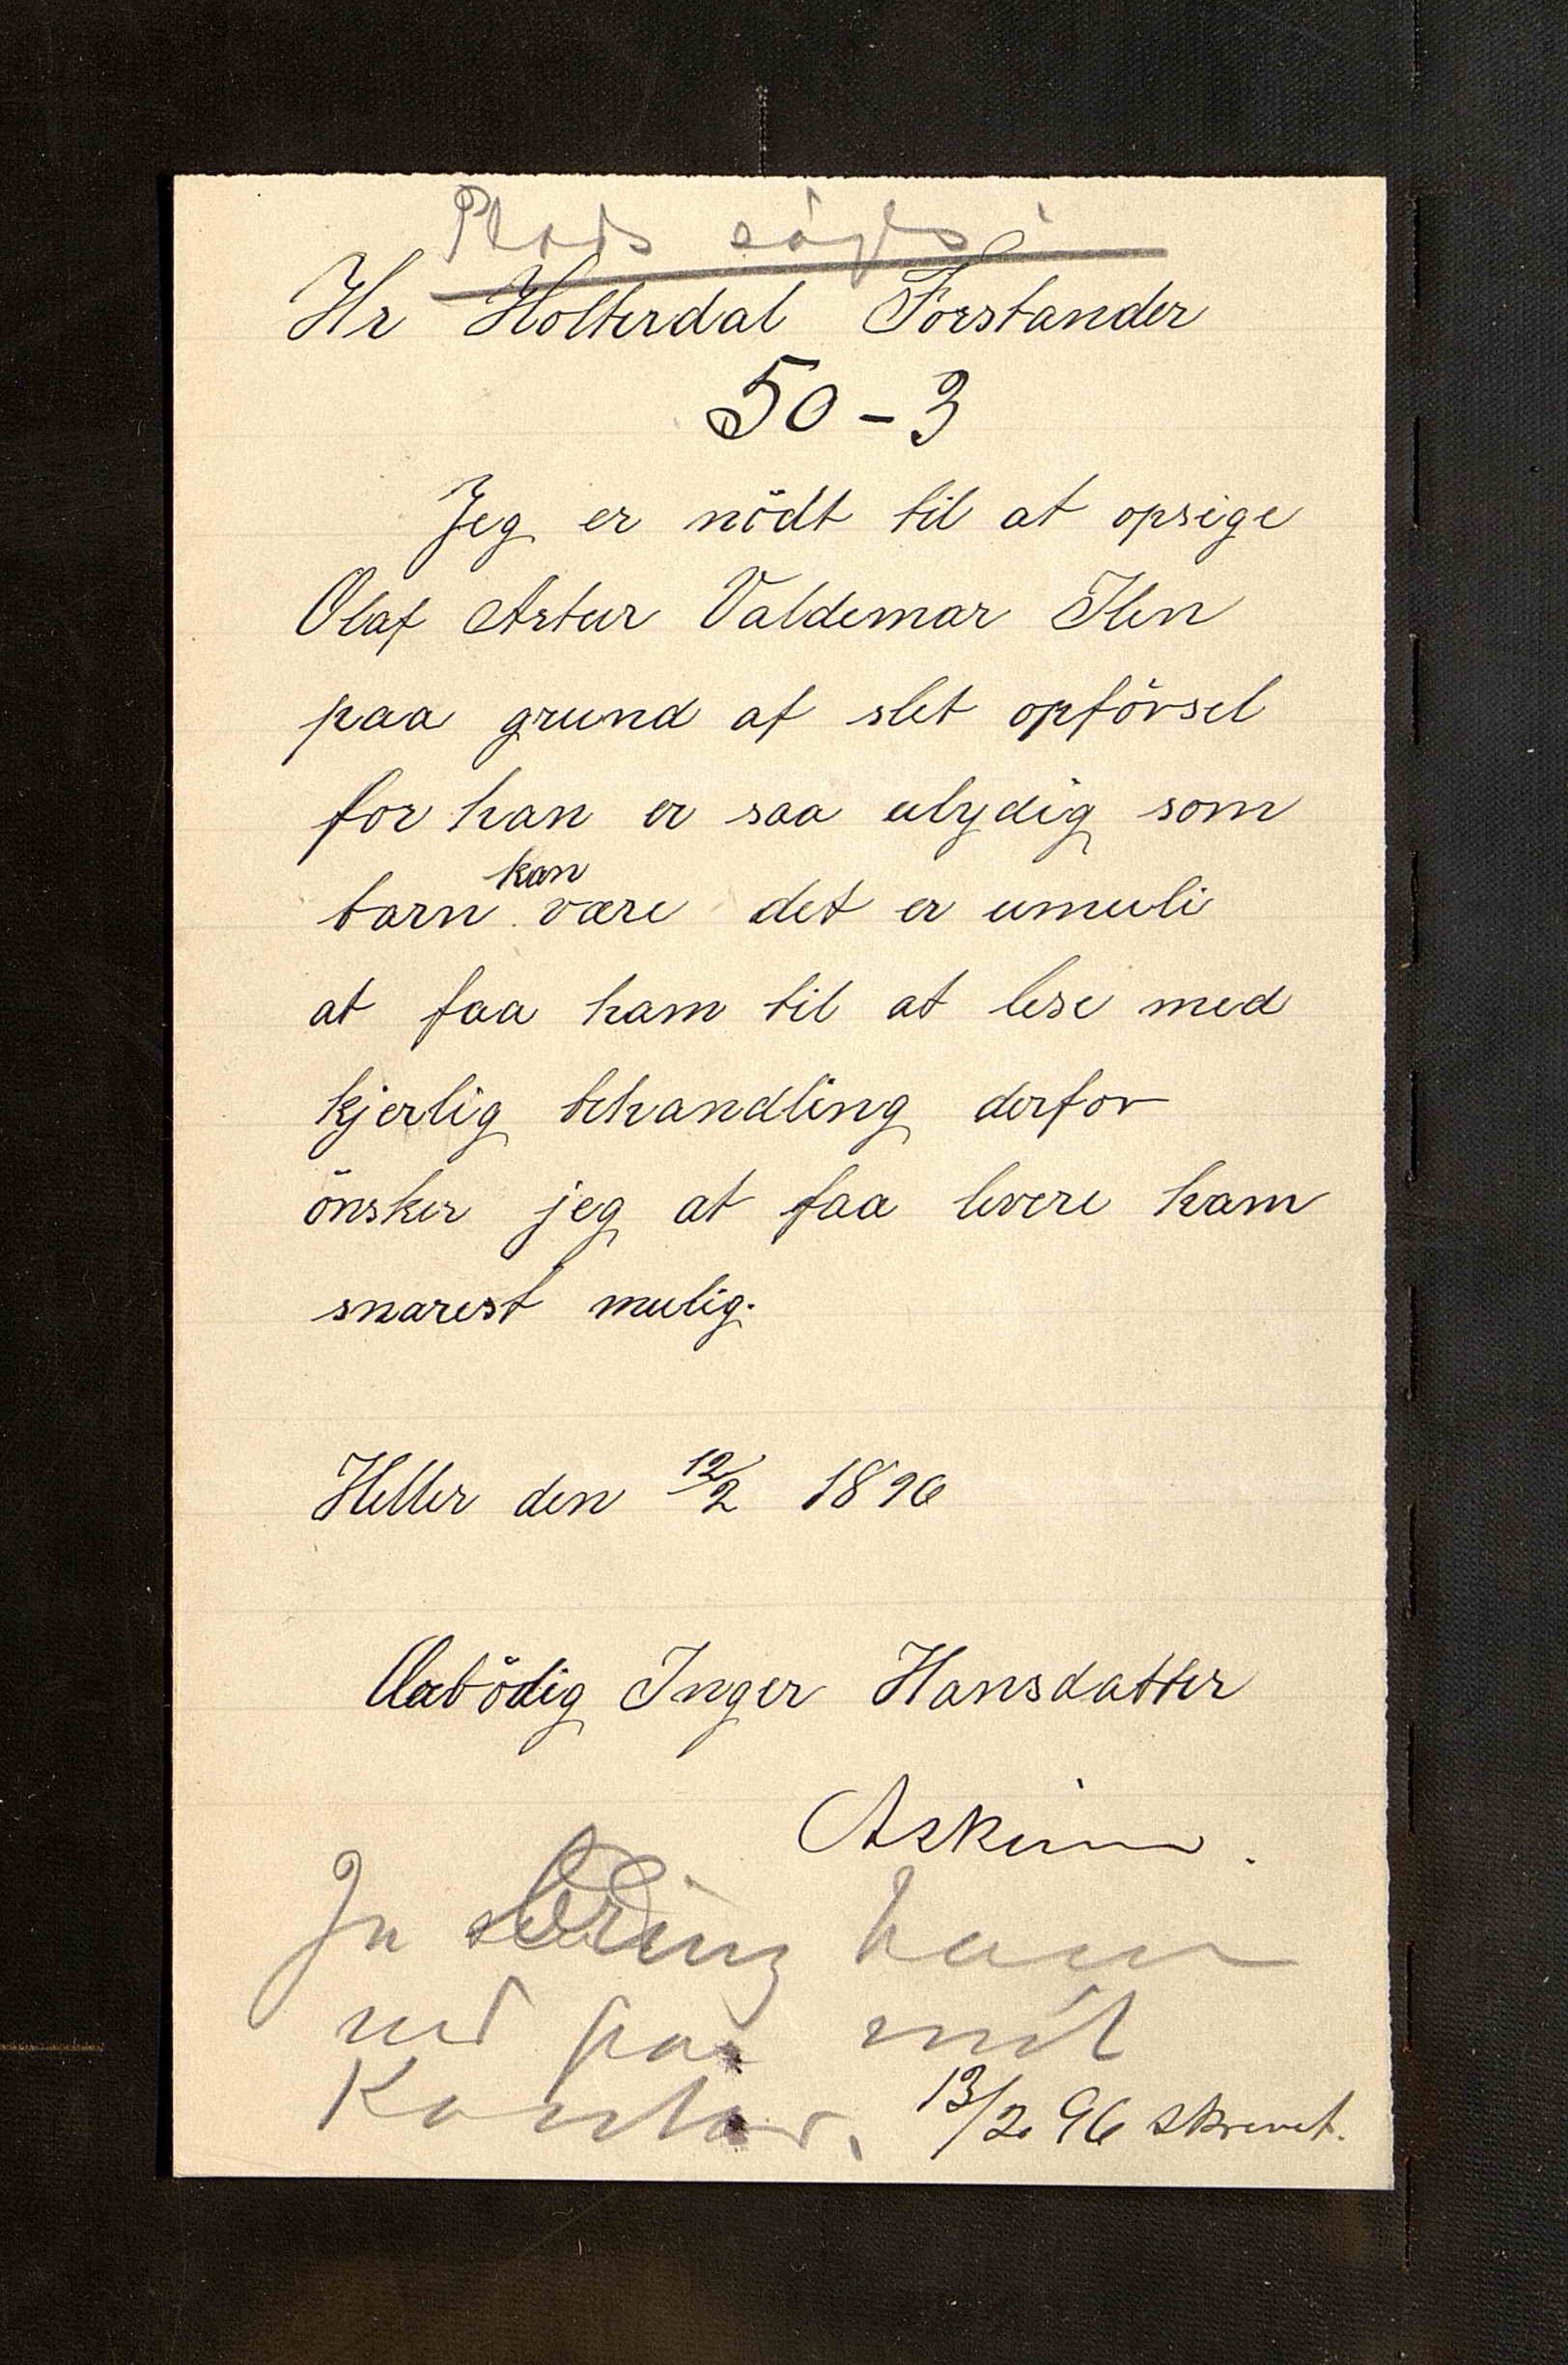 Plads søges i
Hr Holterdal Forstander
50 - 3
Jeg er nödt til at opsige
Olaf Artur Valdemar Ilen
paa grund af slet opförsel
for han er saa ulydig som
barn kan være det er umuli
at faa ham til at lese med
kjerlig behandling derfor
önsker jeg at faa levere ham
snarest mulig.
Heller den 12/2 1896
Ærbödig Inger Hansdatter
Askim.
Ja bring ham
ned paa mit
Kontor.
13/2 96 skrevet.